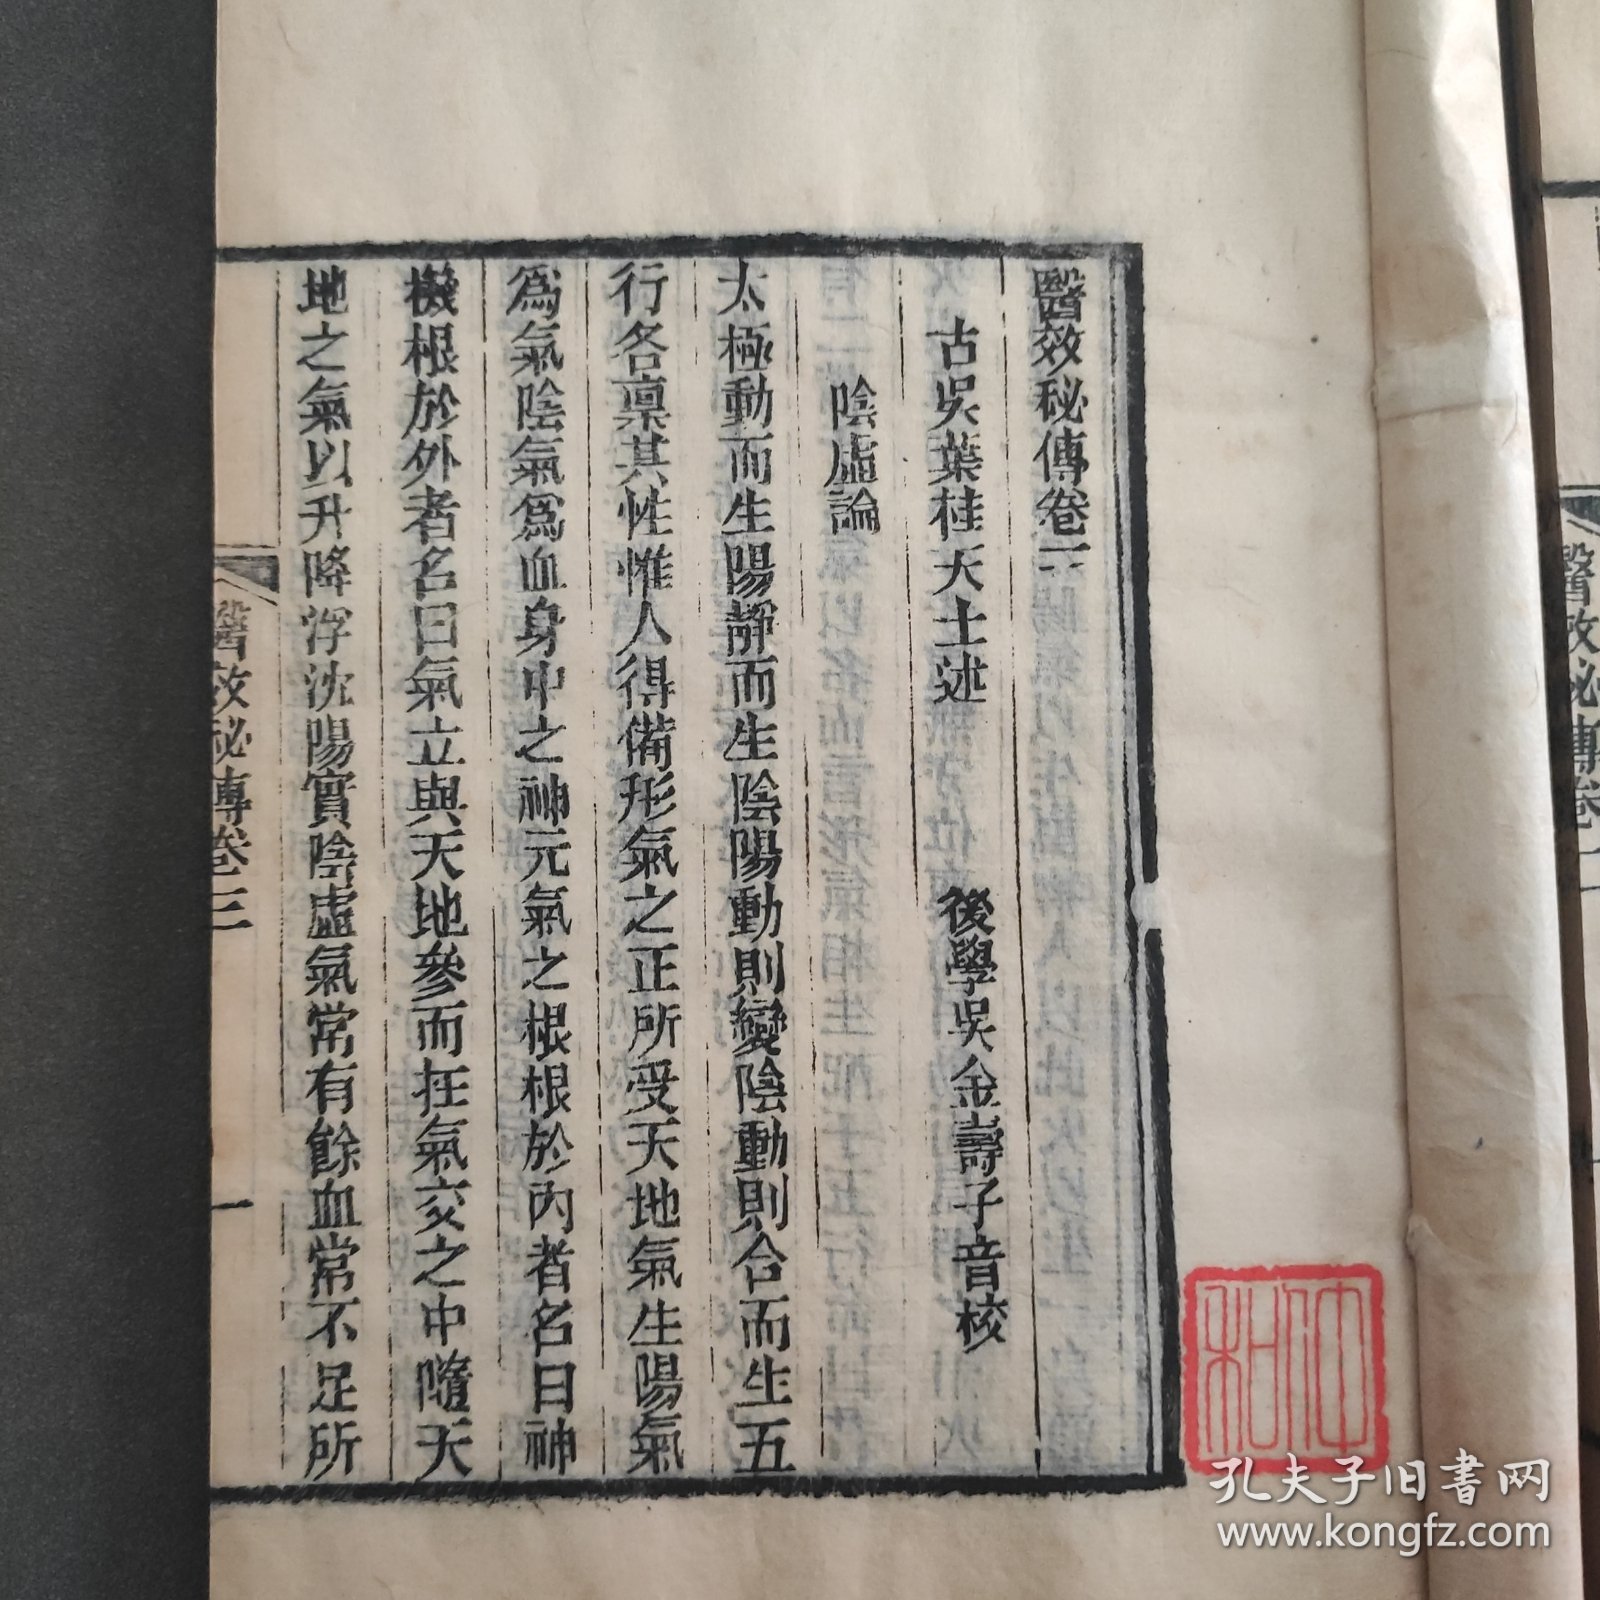 醫效秘傳卷
古吳葉桂天士述 後學吳金壽子音校
陰虛論
太極動而生陽靜而生陰陽動則變陰動則合而生五
行各稟其性惟人得備形氣之正所受天地氣生陽氣
爲氣陰氣爲血身中之神元氣之根根於內者名曰神
機根於外者名曰氣立與天地參而在氣交之中隨天
地之氣以升降浮沈陽實陰虛氣常有餘血常不足所
醫效秘傳卷三
一
醫效秘傳卷
仲和
孔夫子旧书网
www.kongfz.com